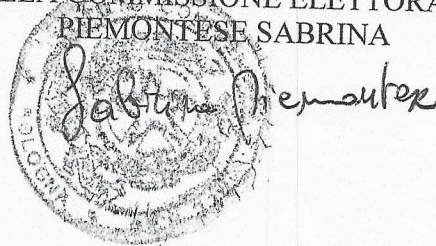 LLA COMMISSIONE ELETTORA
PIEMONTESE SABRINA
Sabrina Piemontese
BOLOGNA